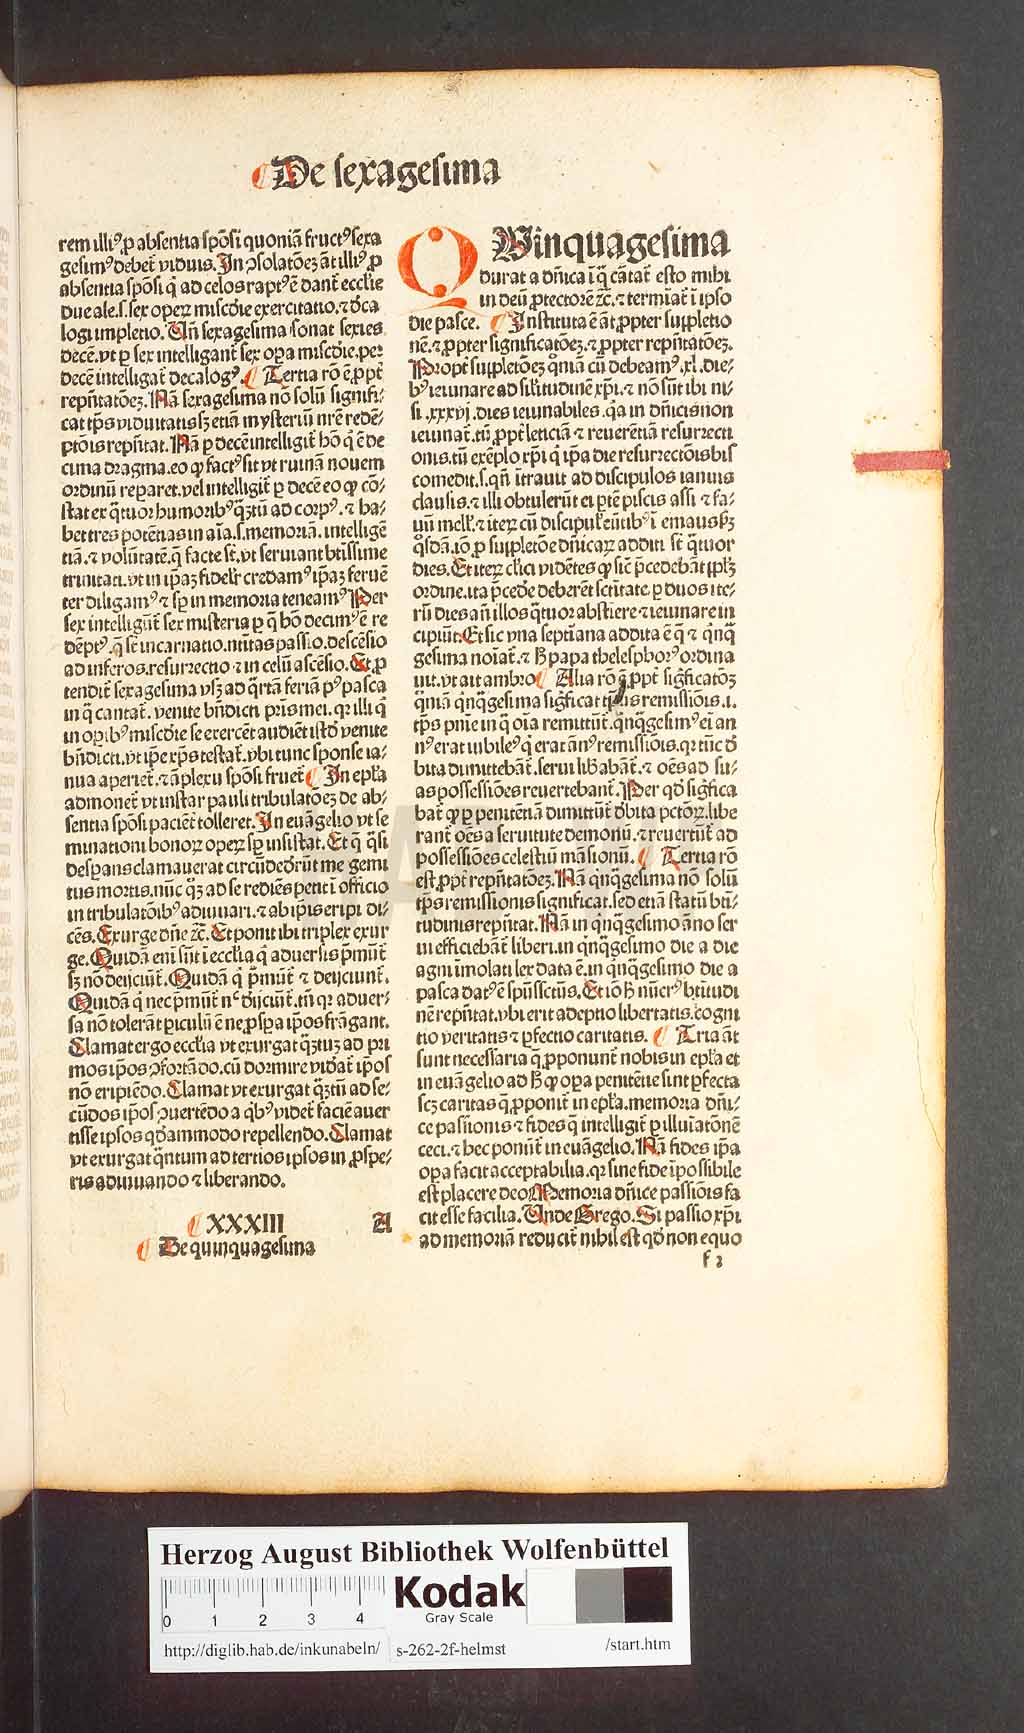 De sexagesima
rem illiꝰ ꝓ absentia spōsi quoniā fructꝰ sexa
gesimꝰ debet᷑ viduis. In ꝯsolatōeꝫ āt illiꝰ ꝓ
absentia spōsi q̇ ad celos raptꝰ ē dant᷑ ecclīe
due ale.s.sex opeꝝ mīscdie exercitatio.⁊ dca
logi impletio. Uñ sexagesima sonat sexies
decē. vt p sex intelligant᷑ sex oꝑa mīscdie. per
decē intelligat᷑ decalogꝰ. Tertia rō ē ꝓpt᷑
rep̄ntatōeꝫ. Nā sexagesima nō solū signifi⸗
cat tp̄s viduitatis sꝫ etiā mysteriū nr̄e redē⸗
ptōis rep̄ntat. Nā p decē intelligit᷑ hō q̇ ē de
cima dragma. eo ꝙ factꝰ sit vt ruinā nouem
ordinū repararet. vel intelligit᷑ p decē eo ꝙ cō⸗
stat ex q̈tuor humoribꝰ q̈ꝫtū ad corpꝰ. ⁊ ha⸗
bet tres potētias in aīa.s.memoriā. intelligē
tiā. ⁊ volūtatē. q̄ facte st̄. vt seruiant btīssime
trinitati. vt in ip̄aꝫ fidelīr credamꝰ ip̄aꝫ feruē
ter diligamꝰ ⁊ sp̄ in memoria teneamꝰ Per
sex intelligūt᷑ sex misteria p q̄ hō decimꝰ ē re
dēptꝰ. q̄ st̄ incarnatio. natiuitas passio. descēsio
ad inferos. resurrectio ⁊ in celū ascēsio. Et ꝓ
tendit᷑ sexagesima vsqꝫ ad q̈rtā feriā pꝰ pasca
in q̄ cantat᷑. venite bn̄dicti pr̄is mei. qꝛ illi q̇
in oꝑibꝰ mīscdie se exercēt audiēt istō venite
bn̄dicti. vt ip̄e xp̄s testat᷑. vbi tunc sponse ia⸗
nua aperiet᷑. ⁊ āplexu spōsi fruet᷑ In epl̄a
admonet᷑ vt instar pauli tribulatōeꝫ de ab⸗
sentia spōsi paciēt᷑ tolleret. In euāgelio vt se
minationi bonoꝝ opeꝝ sp̄ insistat. Et q̄ q̈si
despans clamauerat circūdederūt me gemi
tus mortis. nūc q̈ꝫ ad se rediēs petit ī officio
in tribulatōibꝰ adiuuari. ⁊ ab ip̄is eripi di⸗
cēs. Exurge dn̄e ⁊c. Et ponit ibi triplex exur
ge. Quidā eni sūt ī eccl̄ia q̇ aduersis p̄mūt᷑
sꝫ nō deijciūt᷑. Quidā q̇ p̄mūt᷑ ⁊ deijciunt᷑.
Quidā q̇ nec p̄mūt᷑ nec dijciūt᷑. tn̄ qꝛ aduer⸗
sa nō tolerāt piculū ē ne ꝓspa ip̄os frāgant.
Clamat ergo eccl̄ia vt exurgat q̈ꝫtuꝫ ad pri
mos ip̄os ꝯfortādo. cū dormire videat᷑ ip̄os
nō eripiēdo. Clamat vt exurgat q̈ꝫtū ad se⸗
cūdos ip̄os ꝯuertēdo a q̇bꝰ videt᷑ faciē auer
tisse ipsos qd̄ammodo repellendo. Clamat
vt exurgat q̈ntum ad tertios ipsos in ꝓspe⸗
ris adiuuando ⁊ liberando.
XXXIII A
De quinquagesima
QUinquagesima
durat a dn̄ica ī q̄ cātat᷑ esto mihi
in deū ꝓtectorē ⁊c. ⁊ termiat᷑ ī ipso
die pasce. Instituta ē āt ꝓpter suppletio
nē. ⁊ ꝓpter significatōeꝫ. ⁊ ꝓpter rep̄ntatōeꝫ.
Propt᷑ suppletōeꝫ qm̄iā cū debeamꝰ .xl. die⸗
bꝰ ieiunare ad sil̄itudinē xp̄i. ⁊ nō sūt ibi ni⸗
si .xxxvj. dies ieiunabiles. qa in dn̄icis non
ieiunat᷑. tū ꝓpt᷑ leticiā ⁊ reuerētiā resurrecti
onis. tū exēplo xp̄i q̇ ip̄a die resurrectōis bis
comedit. s. qn̄ ītrauit ad discipulos ianuis
clausis. ⁊ illi obtulerūt ei ptē piscis assi ⁊ fa⸗
uū mell̄. ⁊ iteꝝ cū discipul̄ eūtibꝰ ī emaus ꝫ
q̇sdā. iō ꝓ suppletōe dn̄icaꝝ additi st̄ q̈tuor
dies. Et iteꝝ cl̄ici vidētes ꝙ sic̄ p̄cedebāt ppl̄ꝫ
ordine. ita p̄cede deberēt sctītate. p duos ite⸗
rū dies an̄ illos q̈tuor abstiere ⁊ ieiunare in
cipiūt. Et sic vna septīana addita ē q̄ ⁊ q̇nq̈
gesima noīat᷑. ⁊ h̄ papa thelesphorꝰ ordina
uit. vt ait ambro Alia rō ē ꝓpt᷑ sigficatōꝫ
Qm̄iā q̇nq̈gesima sigficat tp̄us remissiōis .i.
tp̄s pn̄ie in q̄ oīa remittūt᷑. q̇nq̈gesimꝰ eī an
nꝰ erat iubileꝰ q̇ erat ānꝰ remissiōis. qꝛ tūc d̄
bita dimittebāt᷑. serui lib̄abāt᷑. ⁊ oēs ad su⸗
as possessiōes reuertebant᷑. Per qd̄ sigfica
bat᷑ ꝙ p penitētiā dimittūt᷑ d̄bita pctōꝝ. libe
rant᷑ oēs a seruitute demoniū. ⁊ reuertūt᷑ ad
possessiōes celestiū māsionū. Tertia rō
est ꝓpt᷑ rep̄ntatōeꝫ. Nā q̇nq̈gesima nō solū
tp̄s remissionis significat. sed etiā statū bti⸗
tudinis rep̄ntat. Nā in q̇nq̈gesimo āno ser
ui efficiebāt᷑ liberi. in q̇nq̈gesimo die a die
agni īmolati lex data ē. in q̇nq̈gesimo die a
pasca datꝰ ē spūssctūs. Et iō h̄ nūerꝰ btītudi
nē rep̄ntat. vbi erit adeptio libertatis. cogni
tio veritatis ⁊ pfectio caritatis. Tria āt
sunt necessaria q̄ ꝓponunt᷑ nobis in epl̄a et
in euāgelio ad h̄ ꝙ oꝑa penitētie sint pfecta
scꝫ caritas q̄ ꝓponit᷑ in epl̄a. memoria dn̄i⸗
ce passionis ⁊ fides q̄ intelligit᷑ p illuīatōnē
ceci. ⁊ hec ponūt᷑ in euāgelio. Nā fides ip̄a
opa facit acceptabilia. qꝛ sine fide īpossibile
est placere deo Memoria dn̄ice passiōis fa
cit esse facilia. Unde Grego. Si passio xp̄i
ad memoriā reducit᷑ nihil est qd̄ non equo
f 2
Herzog August Bibliothek Wolfenbüttel
0 1 2 3 4
Kodak
Gray Scale
http://diglib.hab.de/inkunabeln/ s-262-2f-helmst /start.htm